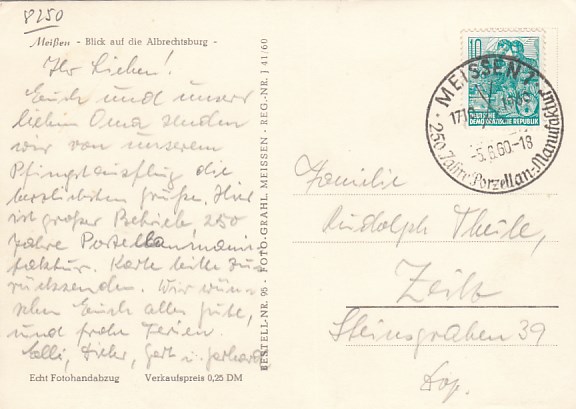 8250
Meißen - Blick auf die Albrechtsburg -
Ihr Lieben!
Euch und unserer
lieben Oma senden
wir von unserem
Pfingstausflug die
herzlichsten Grüße. Hier
ist großer Betrieb, 250
Jahre Porzellanmanu-
faktur. Karte bitte zu-
rücksenden. Wir wün-
schen Euch alles Gute,
und frohe Ferien.
Elli, Gert u. Gerhard
Echt Fotohandabzug Verkaufspreis 0,25 DM
BESTELL-NR. 95 - FOTO-GRAHL, MEISSEN - REG.-NR. J 41/60
10
DEUTSCHE
DEMOKRATISCHE REPUBLIK
MEISSEN 1
-5.6.60-18
250 Jahre Porzellan-Manufaktur
Familie
Rudolph Theile,
Zeitz
Steinsgraben 39